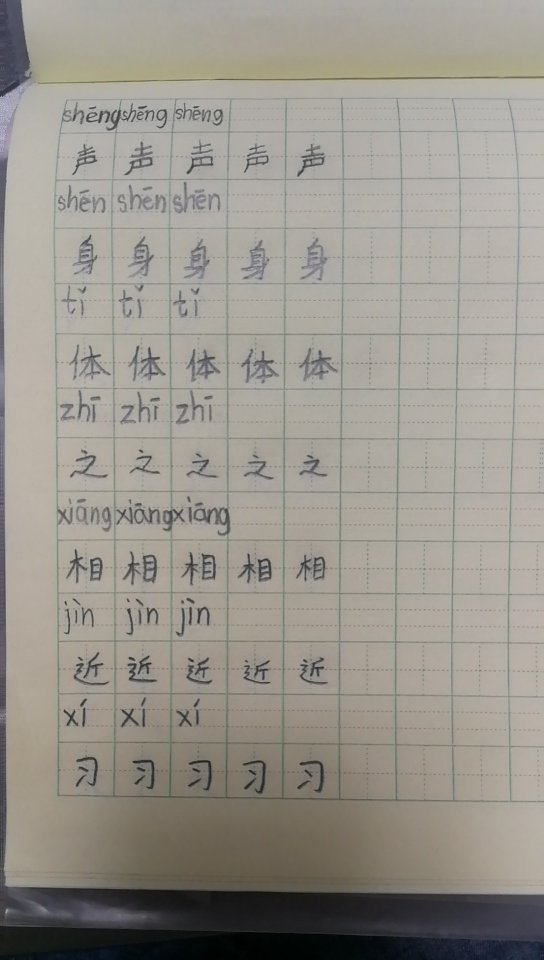 shēng shēng shēng
声 声 声 声 声
shēn shēn shēn
身 身 身 身 身
tǐ tǐ tǐ
体 体 体 体 体
zhī zhī zhī
之 之 之 之 之
xiāng xiāng xiāng
相 相 相 相 相
jìn jìn jìn
近 近 近 近 近
xí xí xí
习 习 习 习 习